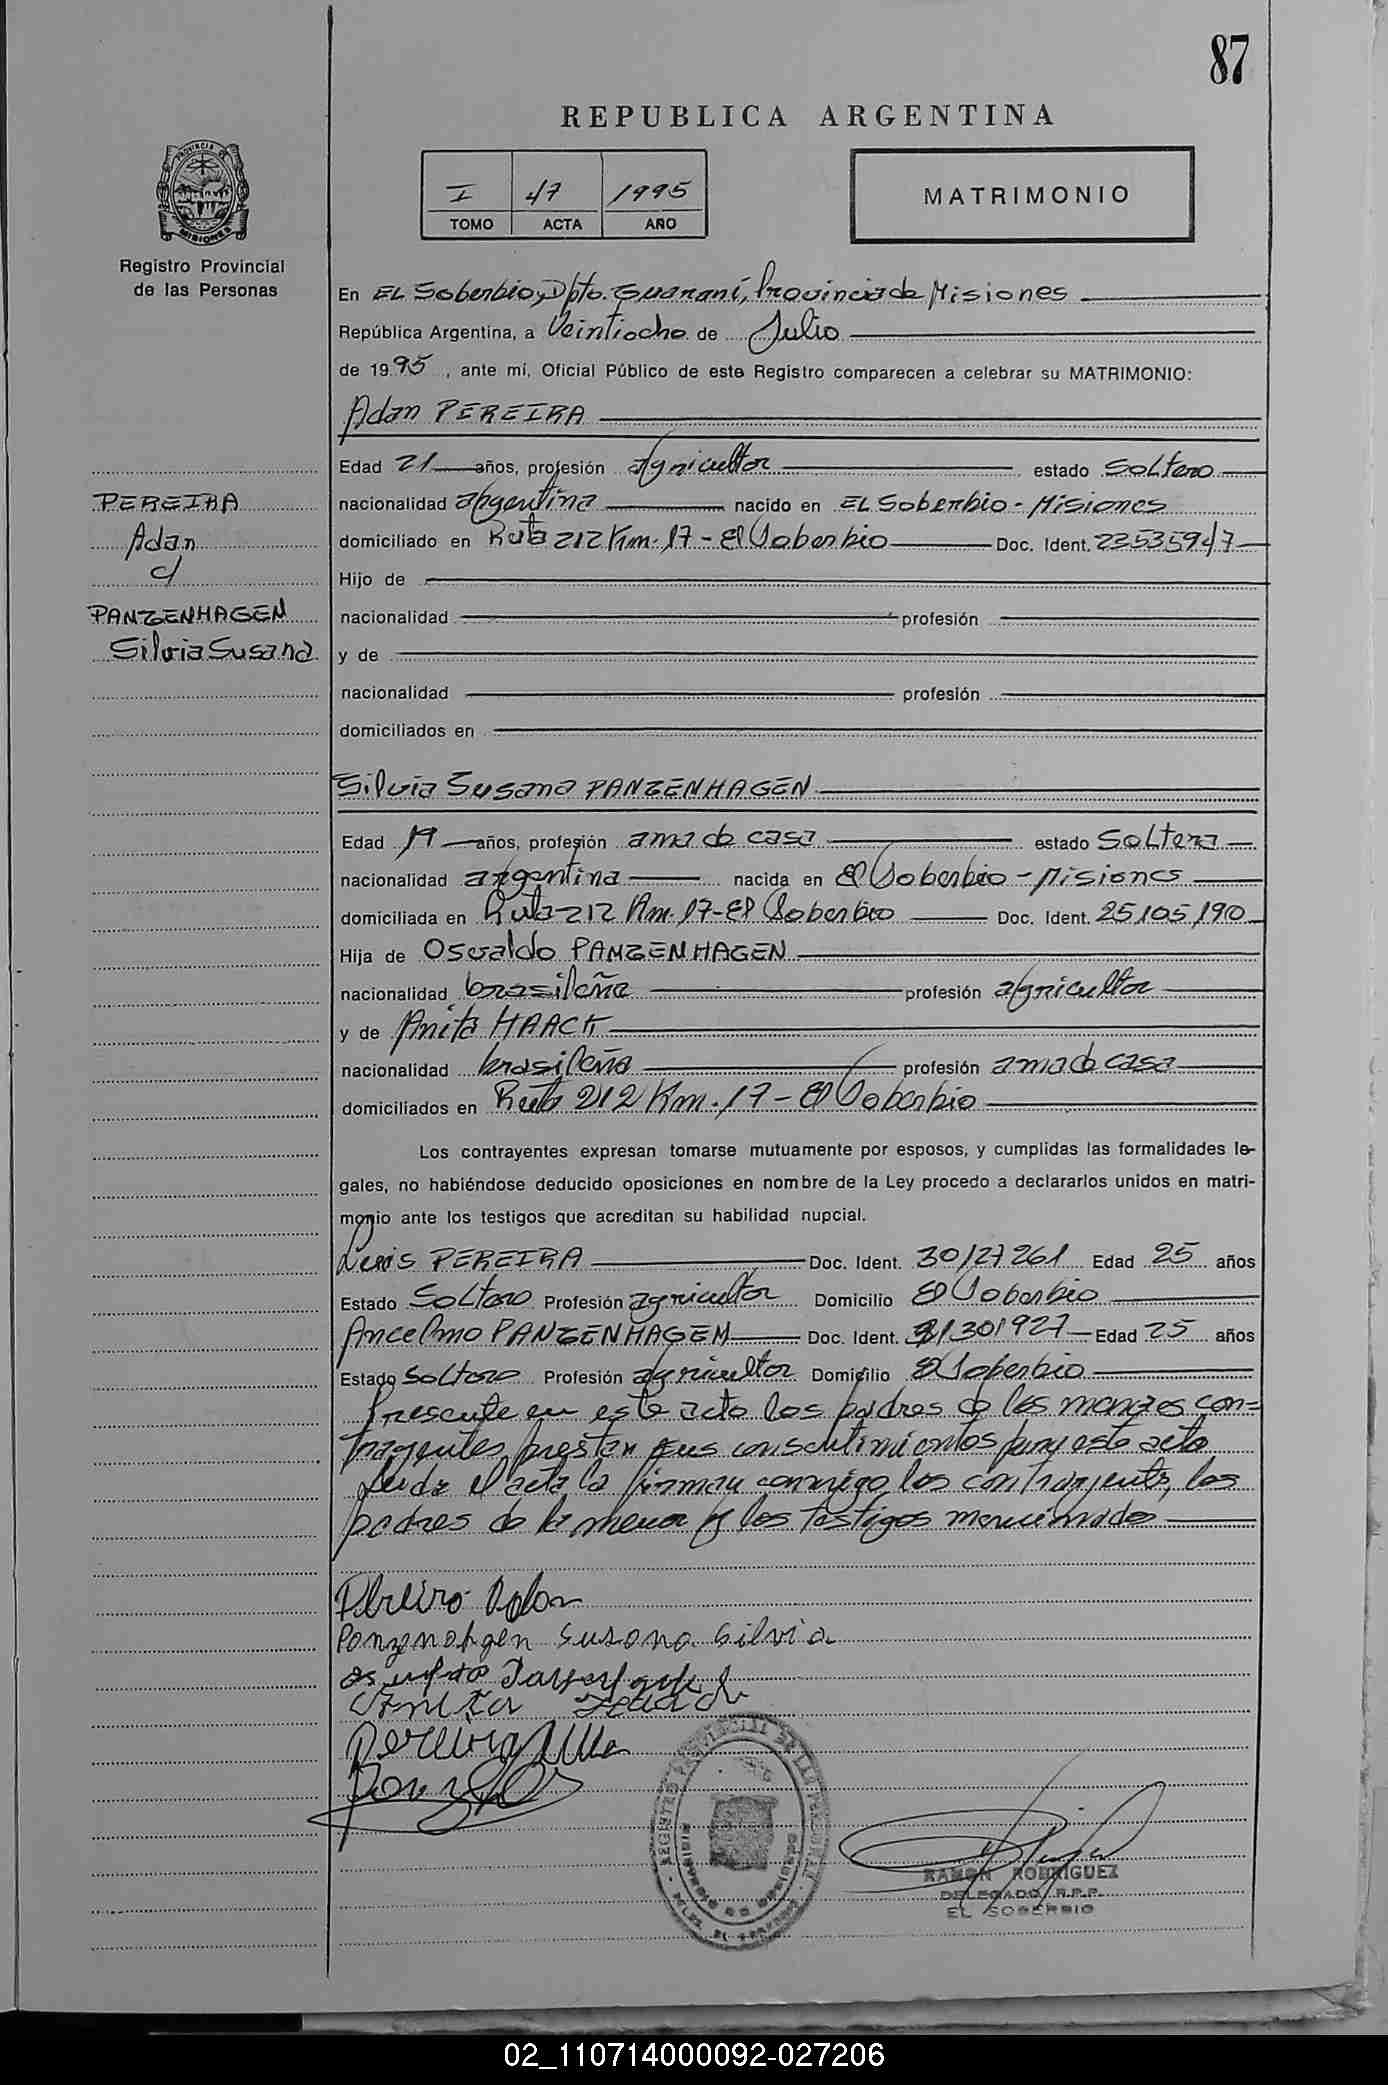 87
REPUBLICA ARGENTINA
I 47 1995
TOMO ACTA AÑO
MATRIMONIO
PROVINCIA DE MISIONES
Registro Provincial
de las Personas
PEREIRA
Adan
c/
PANZENHAGEN
Silvia Susana
En EL Soberbio, Dpto. Guaraní, Provincia de Misiones
República Argentina, a Veintiocho de Julio
de 1995, ante mí, Oficial Público de este Registro comparecen a celebrar su MATRIMONIO:
Adan PEREIRA
Edad 21 años, profesión agricultor estado soltero
nacionalidad argentina nacido en EL Soberbio - Misiones
domiciliado en Ruta 212 Km. 17 - El Soberbio Doc. Ident. 23535947
Hijo de
nacionalidad profesión
y de
nacionalidad profesión
domiciliados en
Silvia Susana PANZENHAGEN
Edad 19 años, profesión ama de casa estado Soltera
nacionalidad argentina nacida en El Soberbio - Misiones
domiciliada en Ruta 212 Km. 17 - El Soberbio Doc. Ident. 25105190
Hija de Osvaldo PANZENHAGEN
nacionalidad brasileña profesión agricultor
y de Anita HAACK
nacionalidad brasileña profesión ama de casa
domiciliados en Ruta 212 Km. 17 - El Soberbio
Los contrayentes expresan tomarse mutuamente por esposos, y cumplidas las formalidades le-
gales, no habiéndose deducido oposiciones en nombre de la Ley procedo a declararlos unidos en matri-
monio ante los testigos que acreditan su habilidad nupcial.
Luis PEREIRA Doc. Ident. 30127261 Edad 25 años
Estado Soltero Profesión agricultor Domicilio El Soberbio
Ancelmo PANZENHAGEM Doc. Ident. 31301927 Edad 25 años
Estado Soltero Profesión agricultor Domicilio El Soberbio
Presente en este acto los padres de los con=
trayentes prestan sus consentimientos este acto
Leida el acta la firman conmigo los contrayente, los
padres de la menor y los testigos
Pereiro Adan
Panzenahgen Susana Silvia
Anita Haack
Pereira
REGISTRO PROVINCIAL DE LAS PERSONAS
MINISTERIO DE GOBIERNO
DELEG. EL SOBERBIO
RAMON RODRIGUEZ
DELEGADO R.P.P.
EL SOBERBIO
02_110714000092-027206